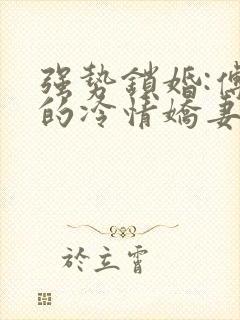 强势鎖婚:傅
的冷情嬌妻
於立霄